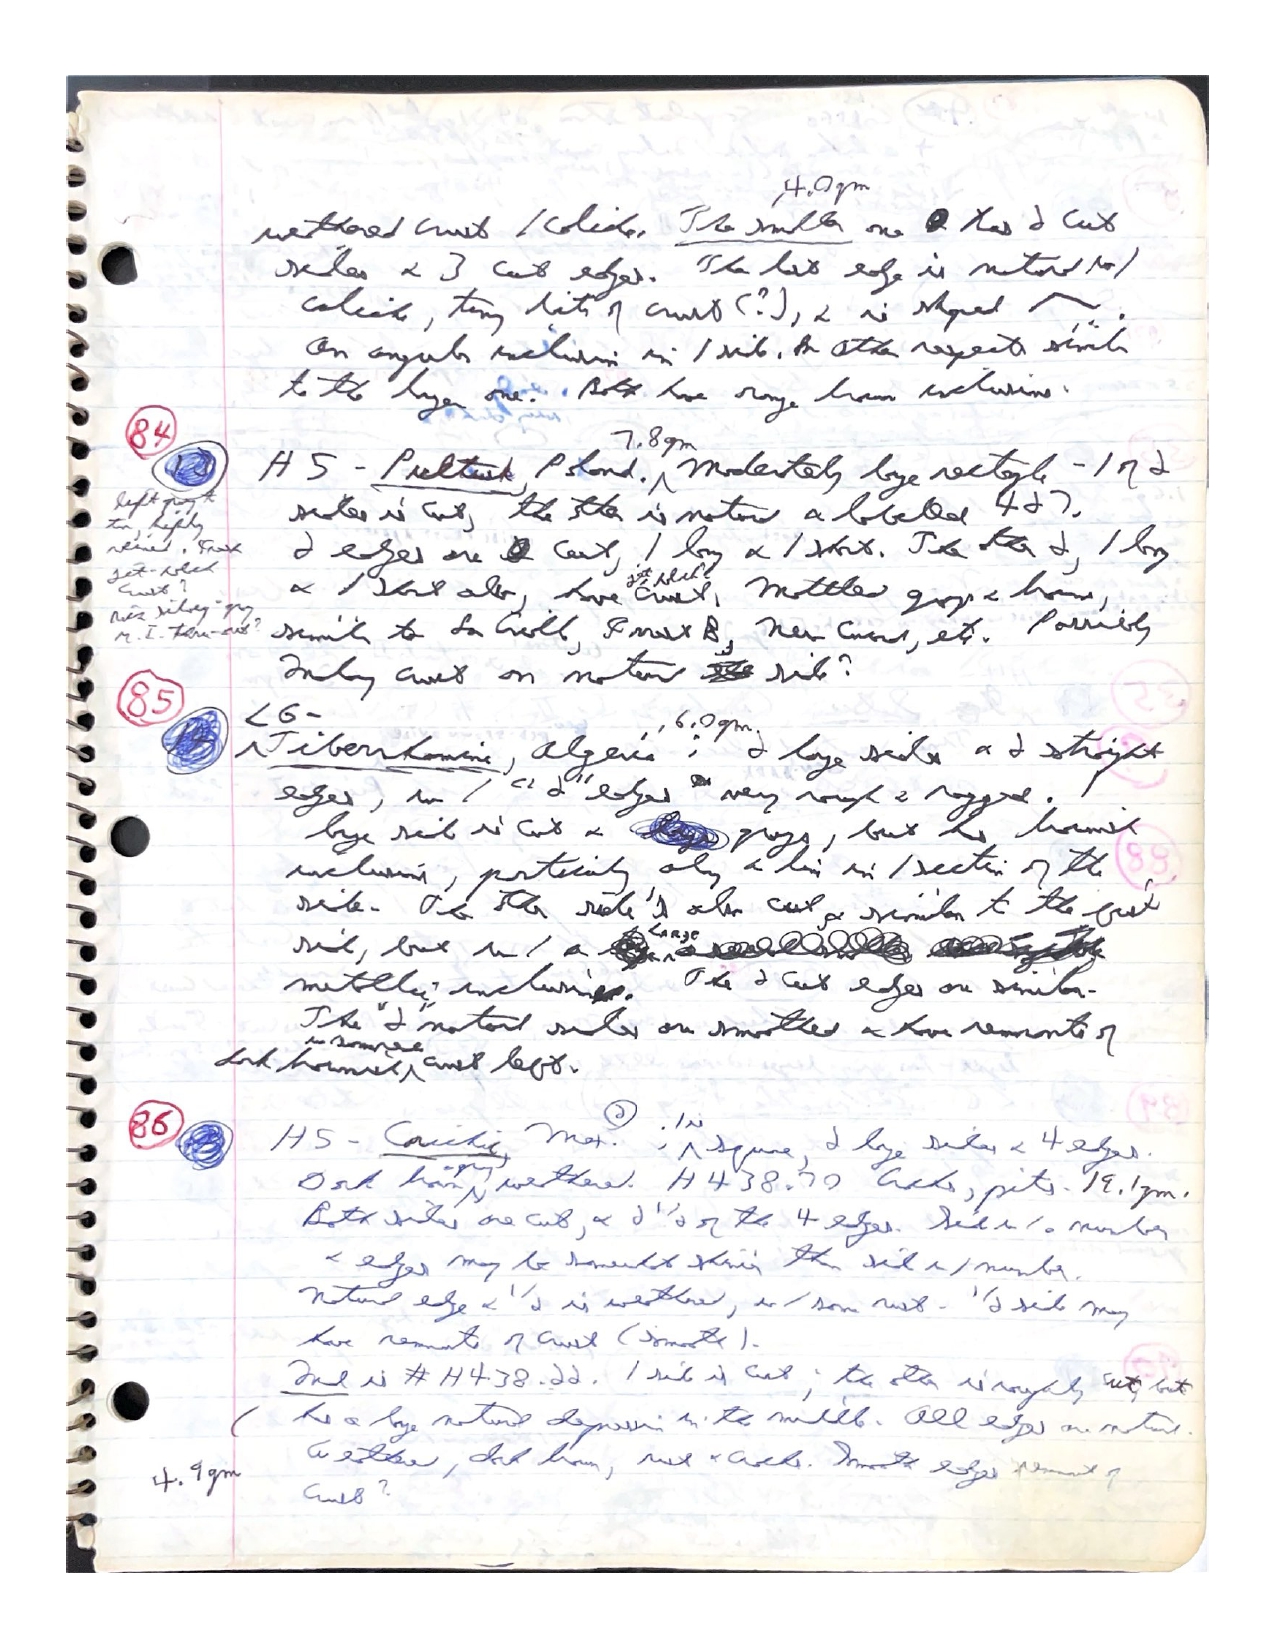 4.0gm
weathered crust / caliche. The smaller one has 2 cut
sides & 3 cut edges. The last edge is natural w/
caliche, tiny bits of crust (?), & is shaped
An angular inclusion in 1 side. In other respects similar
to the larger one. Both have orange brown inclusions.
84
7.8gm
H5 - Pultusk, Poland. Moderately large rectangle - 1 of 2
sides is cut, the other is natural & labelled 427.
2 edges are cut, 1 long & 1 short. The other 2, 1 long
& 1 short also, have jet black crust. Mottled gray & brown,
similar to La Criolla, Forest B, New Concord, etc. Possibly
crust on natural side?
left gray &
tan, highly
veined. Fresh
jet-black
crust?
Nice silvery-gray
N.I. thru-out?
85
L6 -
6.0gm
14 Tiberrhamine, Algeria; 2 large sides & 2 straight
edges, w/ "2" edges very rough & ragged. 1
large side is cut & gray, but has brownish
inclusions, particularly along a line in 1 section of the
side. The other side is also cut, & similar to the first
side, but w/ a large
metallic inclusion. The 2 cut edges are similar.
The "2" natural sides are smoother & have remnants of
dark brownish crust left.
in some
86
H5 - Cuichic, Mex. (2) ; 1 is square, 2 large sides & 4 edges.
Dark brown gray, weathered. H438.70 Cracks, pits - 19.1gm.
Both sides are cut, & 2 1/2 of the 4 edges. Side w/o number
& edges may be somewhat shinier than side w/ number.
Natural edge & 1/2 is weathered, w/ some rust - 1/2 side may
have remnants of crust (smooth).
2nd is # H438.22. 1 side is cut; the other is roughly cut, but
has a large natural depression in the middle. All edges are natural.
Weathered, dark brown, rust & cracks. Smooth edges remnant of
crust?
4.9gm